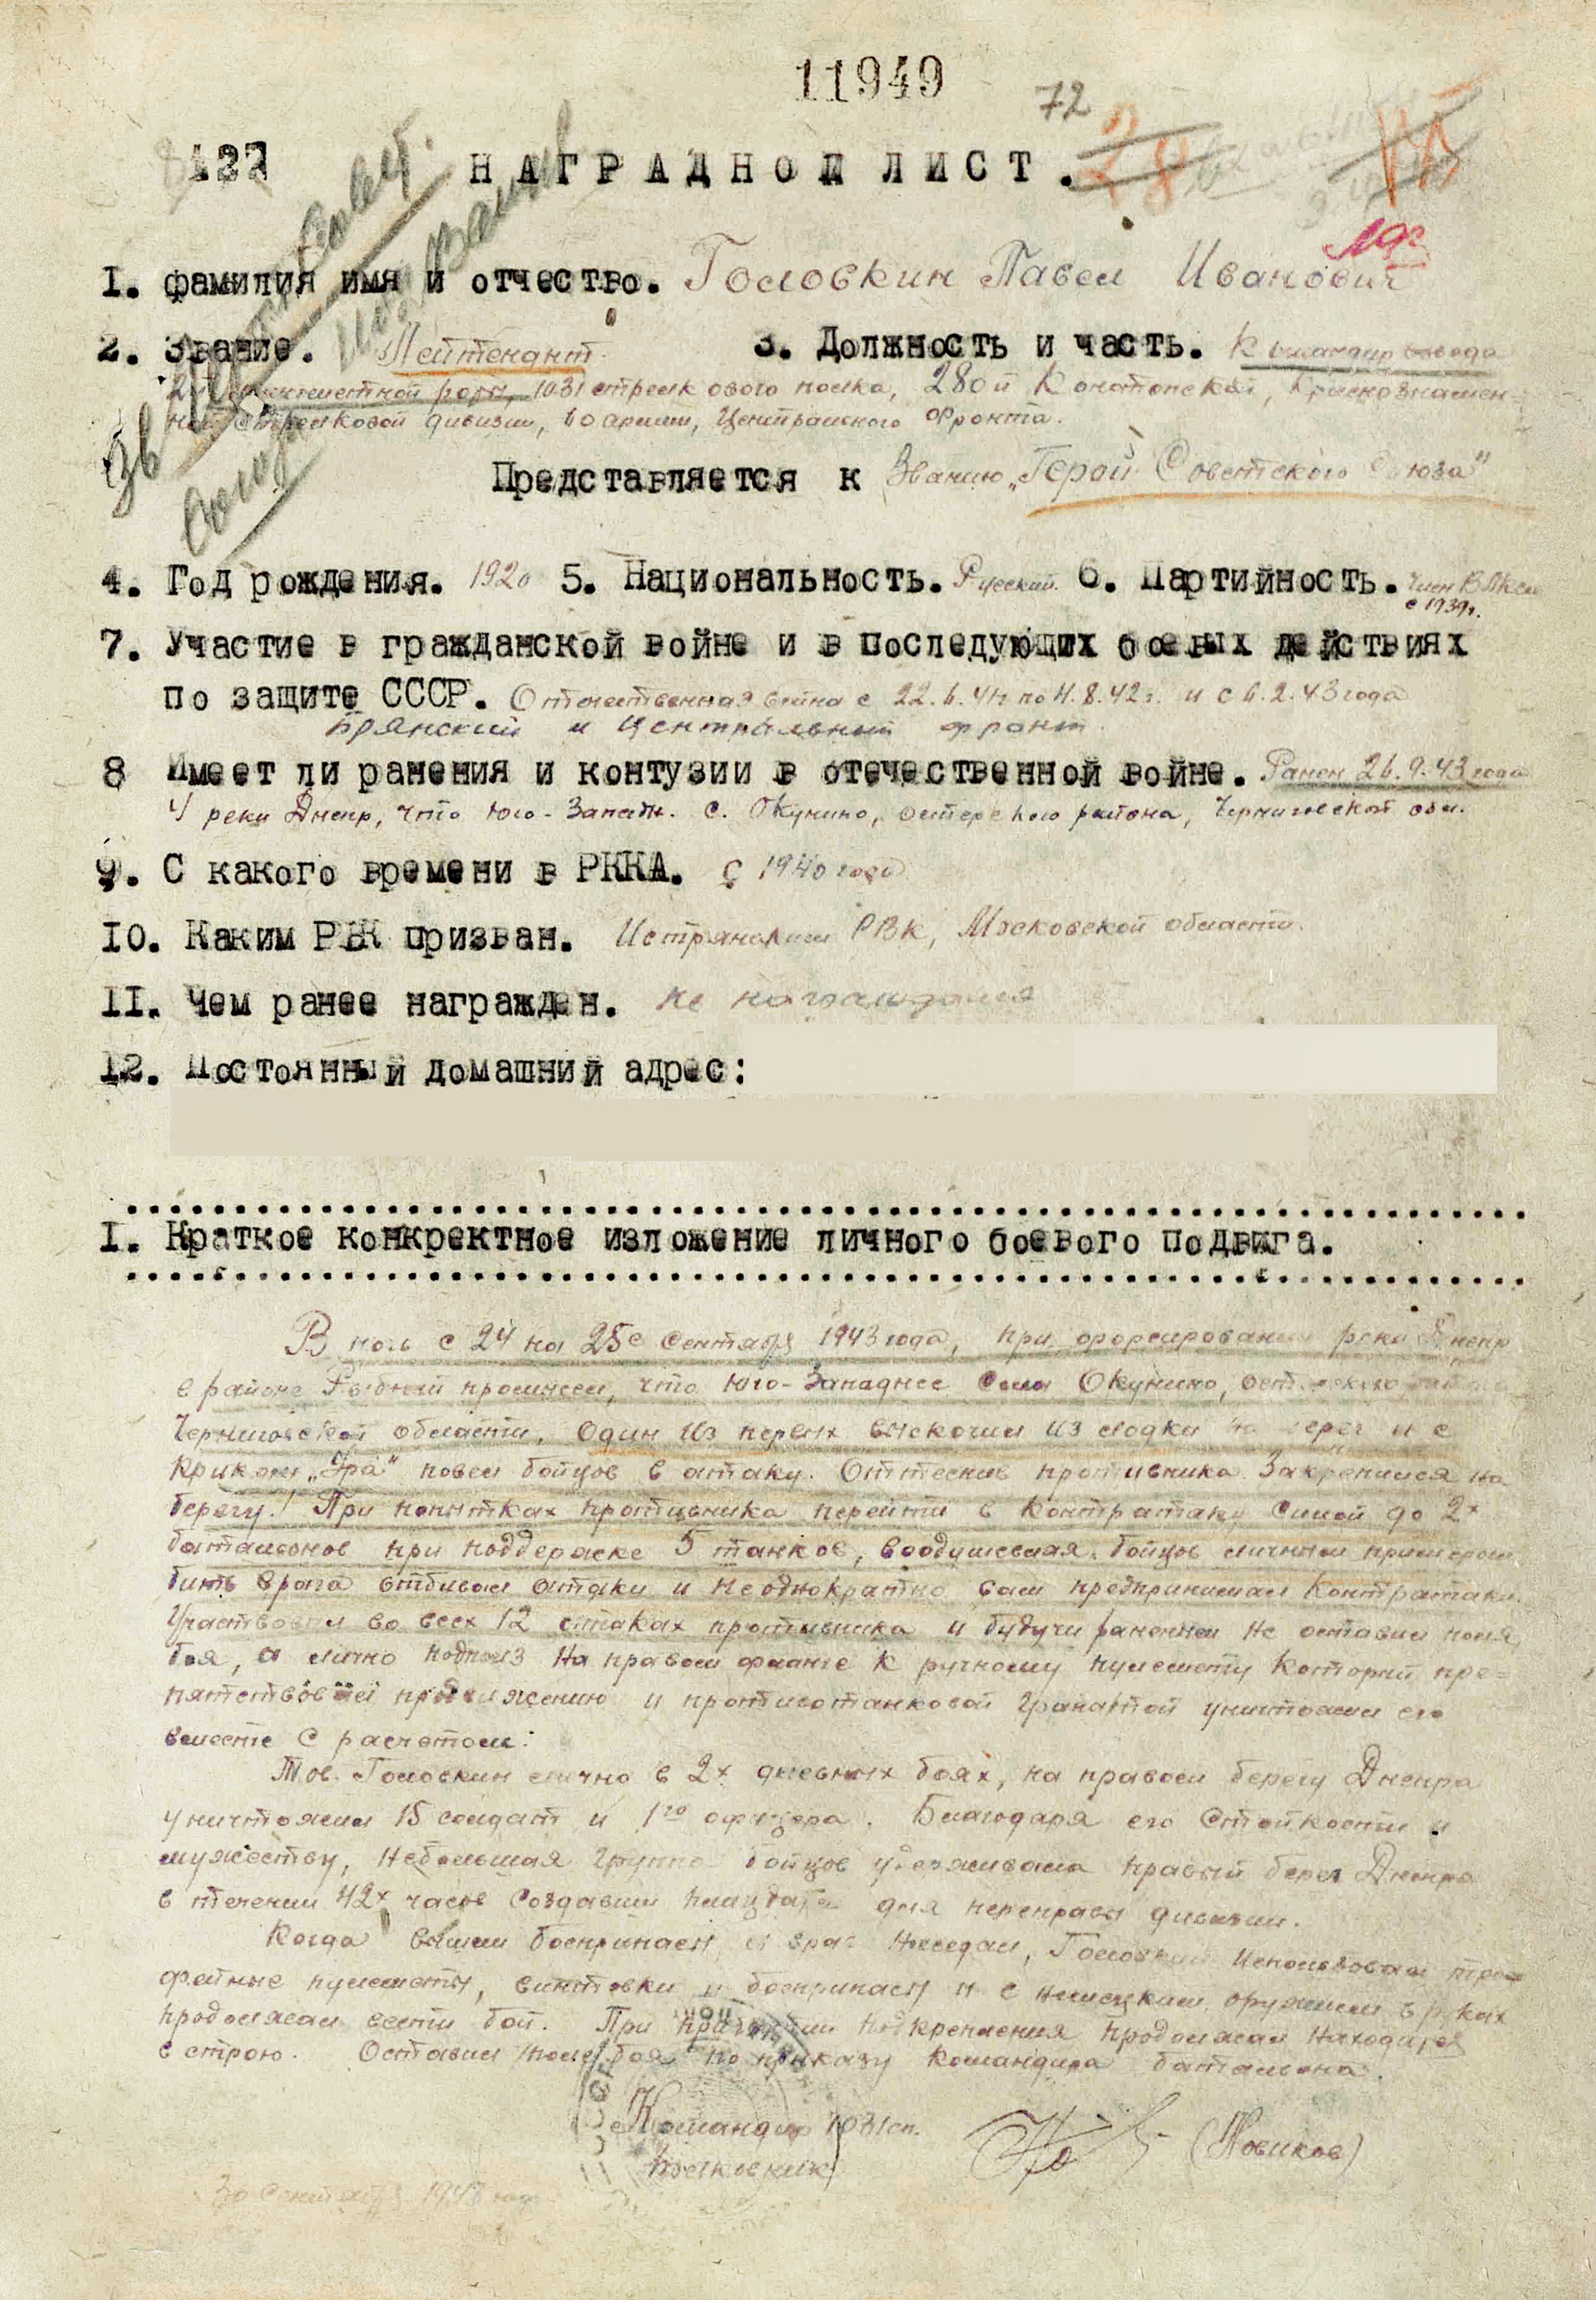 11949
72
НАГРАДНОЙ ЛИСТ.
1. фамилия имя и отчество. Головкин Павел Иванович
2. Звание. Лейтенант 3. Должность и часть. Командир взвода
пулеметной роты, 1031 стрелкового полка, 280й Конотопской, Краснознамен-
ной стрелковой дивизии, 60 армии, Центрального Фронта.
Представляется к Званию „Герой Советского Союза"
4. Год рождения. 1920 5. Национальность. Русский. 6. Партийность. Член ВЛКСМ
с 1939г.
7. Участие в гражданской войне и в последующих боевых действиях
по защите СССР. Отечественная война с 22.6.41г по 4.8.42г. и с 6.2.43 года
Брянский и Центральный фронт.
8 Имеет ли ранения и контузии в отечественной войне. Ранен 26.9.43 года
У реки Днепр, что Юго-Западн. с. Окунино, Остерского района, Черниговской обл.
9. С какого времени в РККА. С 1940 года
10. Каким РВК призван. Истринским РВК, Московской области.
11. Чем ранее награжден. Не награждался
12. Постоянный домашний адрес:
I. Краткое конкректное изложение личного боевого подвига.
В ночь с 24 на 25е Сентября 1943 года, при форсировании реки Днепр
в районе Рыбный промысел, что Юго-Западнее Села Окунино, Остерского района
Черниговской области, Один из первых выскочил из лодки на берег и с
криком „Ура" повел бойцов в атаку. Оттеснив противника Закрепился на
берегу! При попытках противника перейти в Контратаку Силой до 2х
батальонов при поддержке 5 танков, воодушевляя бойцов личным примером
бить врага отбивал атаки и неоднократно сам предпринимал Контратаки.
Участвовал во всех 12 атаках противника и будучи раненным не оставил поля
боя, а лично подполз На правом фланге к ручному пулемету который пре=
пятствовал продвижению и противотанковой Гранатой уничтожил его
вместе с расчетом.
Тов. Головкин лично в 2х дневных боях, на правом берегу Днепра
уничтожил 15 солдат и 1го офицера. Благодаря его Стойкости и
мужеству, Небольшая Группа бойцов удерживала правый берег Днепра
в течении 42х часов Создавши плацдарм для переправы дивизии.
Когда вышли боеприпасы, и враг Наседал, Головкин Использовал тро-
фейные пулеметы, винтовки и боеприпасы и с немецким оружием в руках
продолжал вести бой. При подкрепления продолжал Находится
в строю. Оставил поле боя по приказу Командира батальона.
Командир 1031 сп.
Полковник (Новиков)
30 Сентября 1943 года